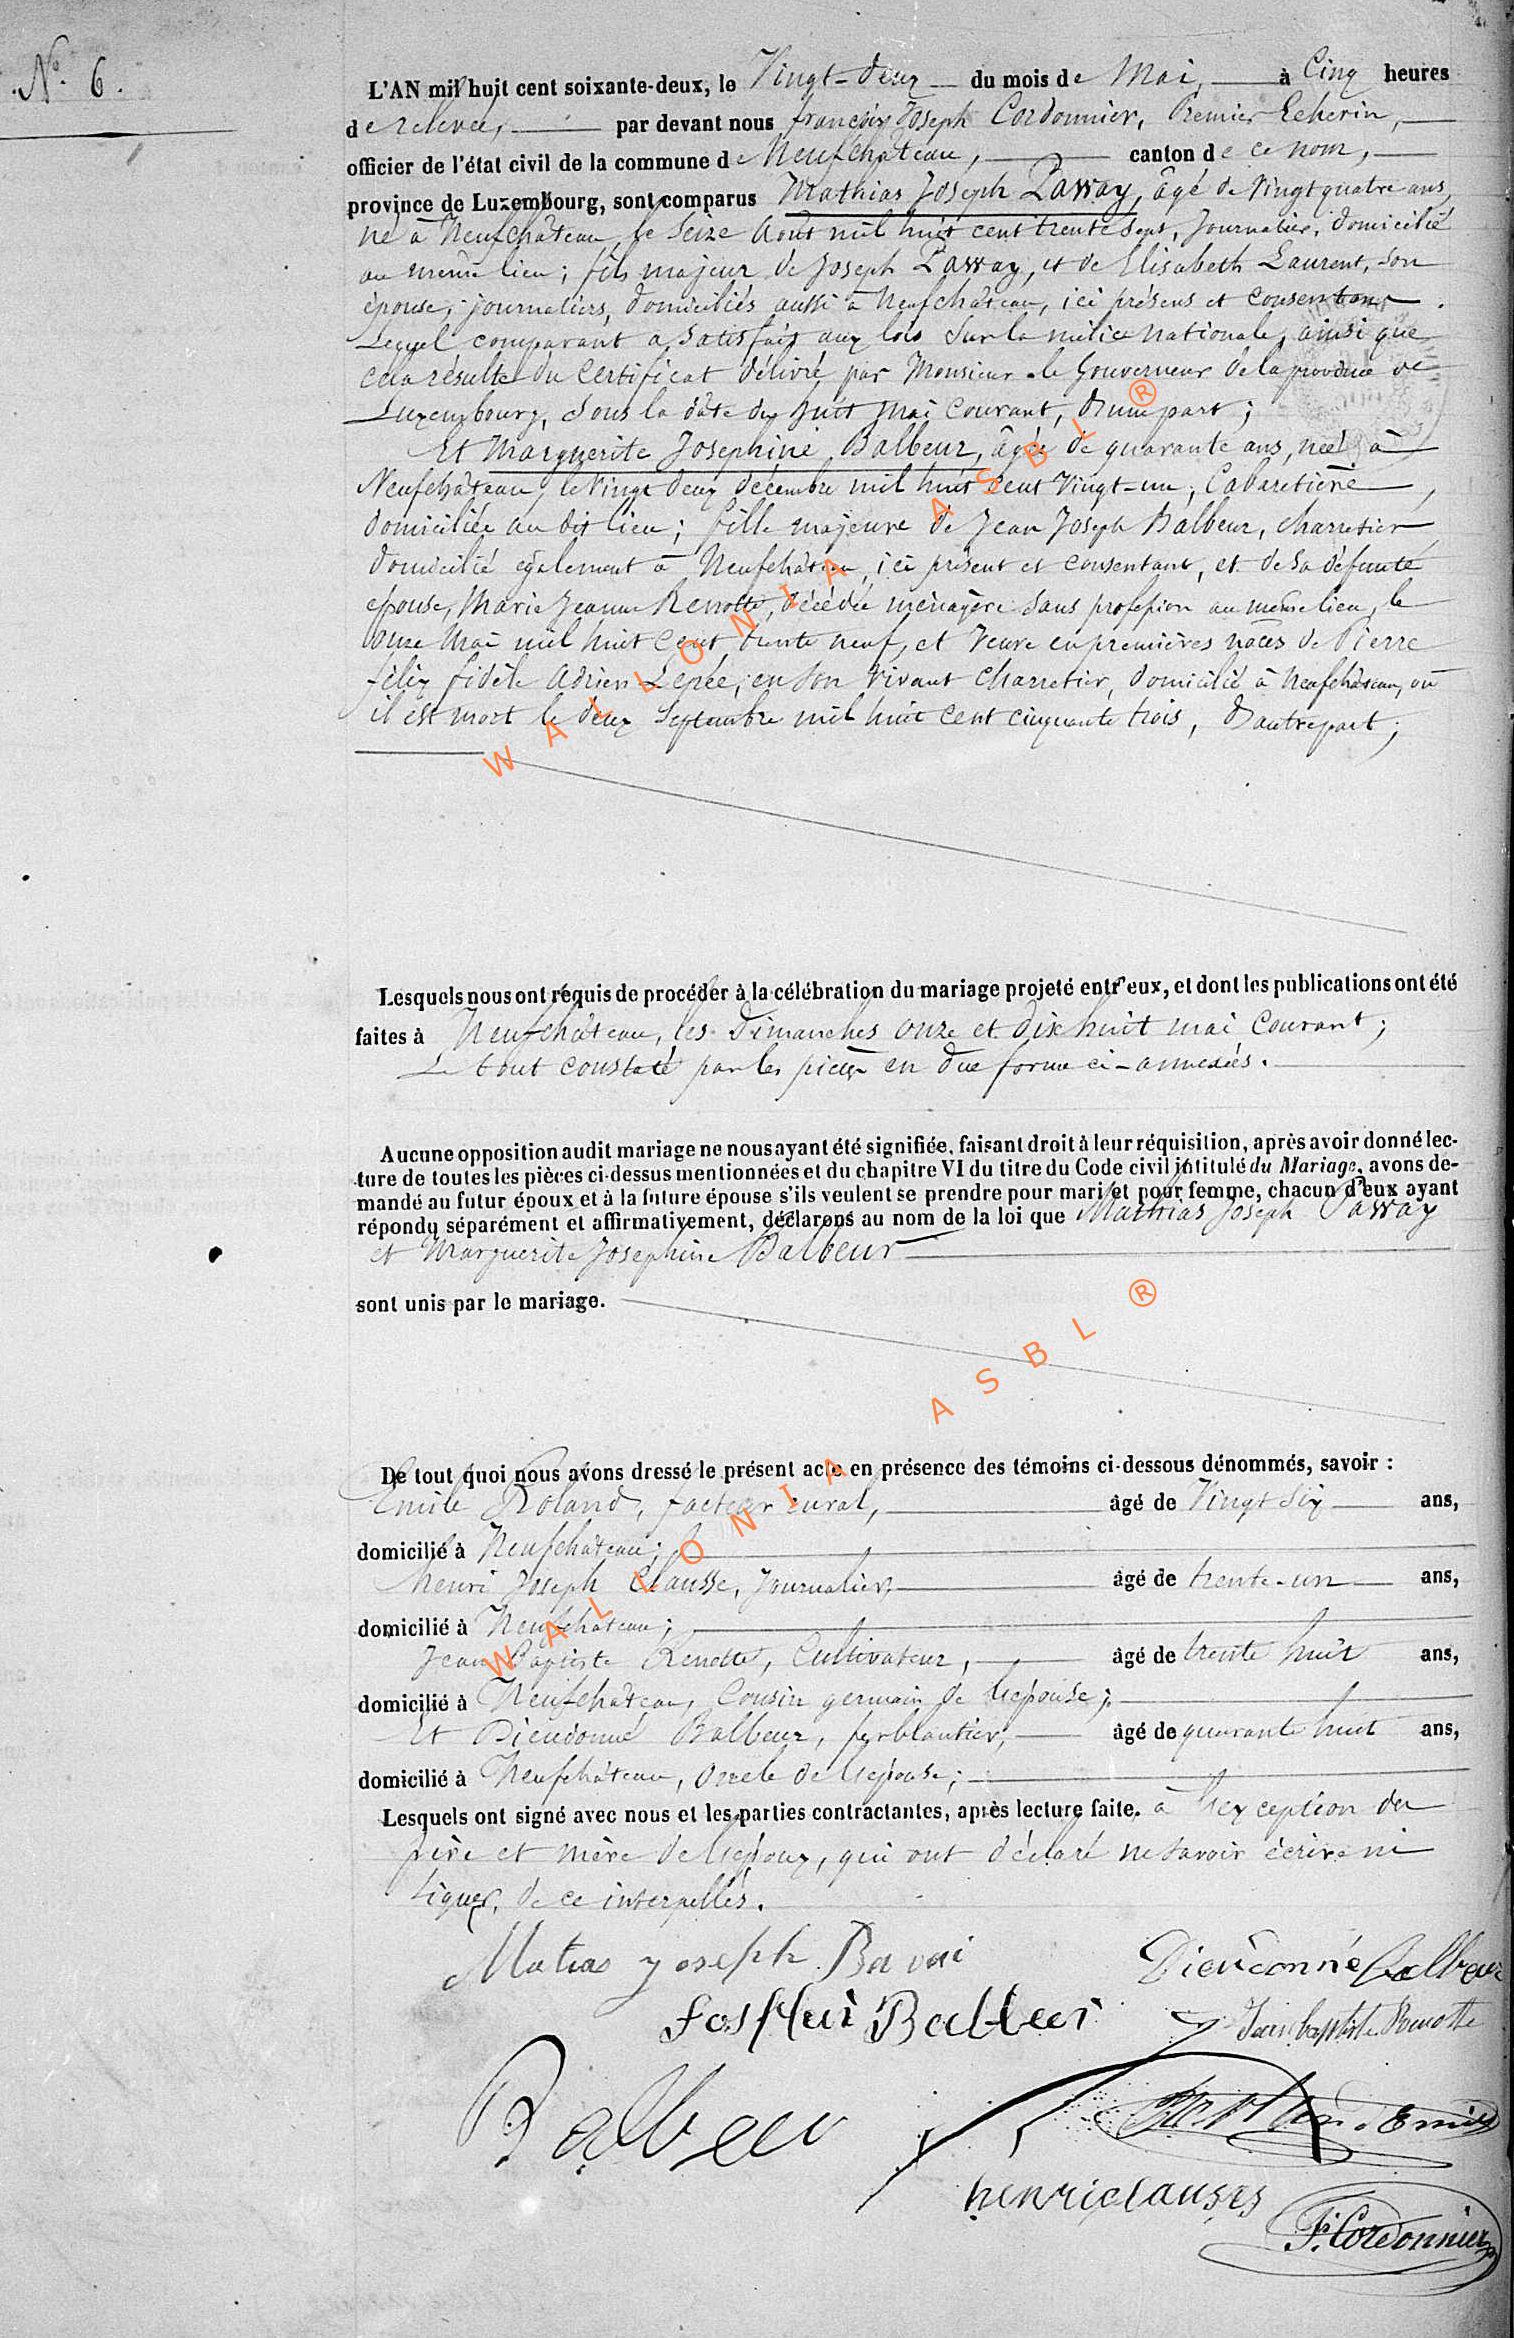 N.° 6.
L'AN mil huit cent soixante-deux, le Vingt-deux du mois de Mai, à Cinq heures
de relevée, par devant nous françois Joseph Cordonnier, Premier Echevin,
officier de l'état civil de la commune de Neufchâteau, canton de ce nom,
province de Luxembourg, sont comparus Mathias Joseph Pavvay, âgé de vingt quatre ans,
né à Neufchâteau, le Seize Août mil huit cent trente sept, Journalier, domicilié
au même lieu; fils majeur de Joseph Pavvay, et de Elisabeth Laurent, son
épouse, journaliers, domiciliés aussi à Neufchâteau, ici présens et consentans.
Lequel comparant a satisfait aux lois sur la milice nationale, ainsi que
cela résulte du certificat délivré par Monsieur le Gouverneur de la province de
Luxembourg, sous la date du huit mai courant, d'une part;
Et Marguerite Josephine Balbeur, âgée de quarante ans, née à
Neufchâteau, le vingt deux décembre mil huit cent vingt-un, Cabaretière,
domiciliée au dit lieu; fille majeure de Jean Joseph Balbeur, charretier
domicilié également à Neufchâteau, ici présent et consentant, et de sa défunte
epouse, Marie Jeanne Renotte, décédée ménagère sans profession au même lieu, le
onze Mai mil huit cent trente neuf, et Veuve en premières noces de Pierre
félix fidèle Adrien Lepée, en son vivant charretier, domicilié à Neufchâteau, où
il est mort le deux Septembre mil huit cent cinquante trois, d'autre part;
Lesquels nous ont requis de procéder à la célébration du mariage projeté entr'eux, et dont les publications ont été
faites à Neufchâteau, les Dimanches onze et dix huit mai courant;
Le tout constaté par les pièces en due forme ci-annexées.
Aucune opposition audit mariage ne nous ayant été signifiée, faisant droit à leur réquisition, après avoir donné lec-
ture de toutes les pièces ci-dessus mentionnées et du chapitre VI du titre du Code civil intitulé du Mariage, avons de-
mandé au futur époux et à la future épouse s'ils veulent se prendre pour mari et pour femme, chacun d'eux ayant
répondu séparément et affirmativement, déclarons au nom de la loi que Mathias Joseph Pavvay
et Marguerite Josephine Balbeur
sont unis par le mariage.
De tout quoi nous avons dressé le présent acte en présence des témoins ci-dessous dénommés, savoir :
Emile Roland, facteur rural, âgé de Vingt Six ans,
domicilié à Neufchâteau;
Henri Joseph Clausse, Journalier, âgé de trente-un ans,
domicilié à Neufchâteau;
Jean Baptiste Renotte, Cultivateur, âgé de trente huit ans,
domicilié à Neufchâteau, Cousin germain de l'épouse;
Et Dieudonné Balbeur, ferblantier, âgé de quarante huit ans,
domicilié à Neufchâteau, oncle de l'épouse;
Lesquels ont signé avec nous et les parties contractantes, après lecture faite. à l'exception des
père et mère de l'époux, qui ont déclaré ne savoir écrire ni
signer, de ce interpellés.
Matias Joseph Bavai Dieudonné Balbeur
Balbeur Jean baptiste Renotte
Balbeur Emile
henri clauses
F. Cordonnier
WALLONIA ASBL ®
WALLONIA ASBL ®